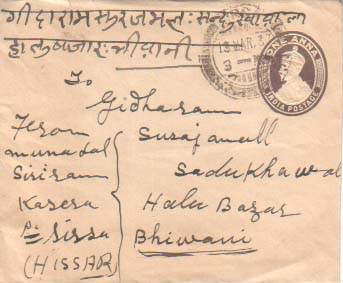 गीदाराम सुरजमल : सादुखावाला
हालुबजार : भीवानी
13 MAR. 3
ONE ANNA
INDIA POSTAGE
To
Gidharam
Surajmull
Sadukhawal
Halu Bazar
Bhiwani
From
munalal
Siriram
Kasera
Sirsa
(HISSAR)